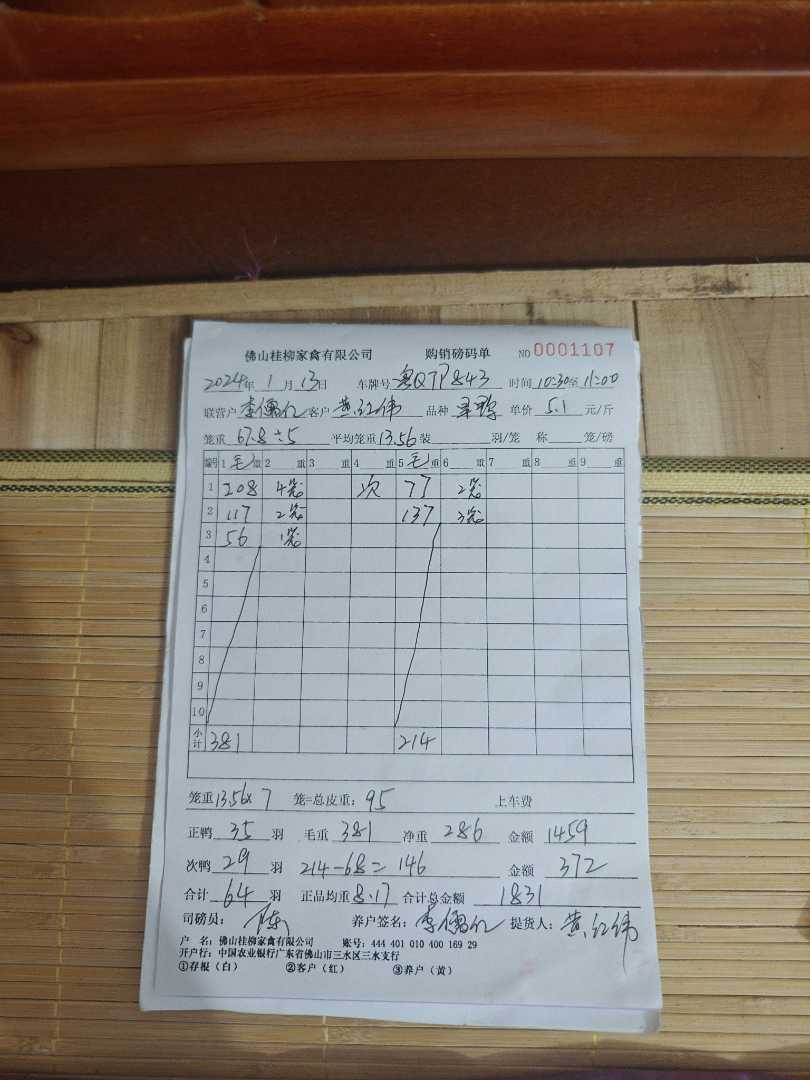 佛山桂柳家禽有限公司 购销磅码单 NO 0001107
2024年 1月 13日 车牌号 粤Q7P843 时间 10:30至 11:00
联营户 李儒仁 客户 黄红伟 品种 单价 5.1 元/斤
笼重 67.8÷5 平均笼重 13.56 装 羽/笼 称 笼/磅
编号 1 毛重 2 重 3 重 4 重 5 毛重 6 重 7 重 8 重 9 重
1 208 4笼 次 77 2笼
2 117 2笼 137 3笼
3 56 1笼
4
5
6
7
8
9
10
小计 381 214
笼重 13.56×7 笼=总皮重: 95 上车费
正鸭 35 羽 毛重 381 净重 286 金额 1459
次鸭 29 羽 214-68= 146 金额 372
合计 64 羽 正品均重 8.17 合计总金额 1831
司磅员: 陈 养户签名: 李儒仁 提货人: 黄红伟
户 名: 佛山桂柳家禽有限公司 账号: 444 401 010 400 169 29
开户行: 中国农业银行广东省佛山市三水区三水支行
①存根(白) ②客户(红) ③养户(黄)